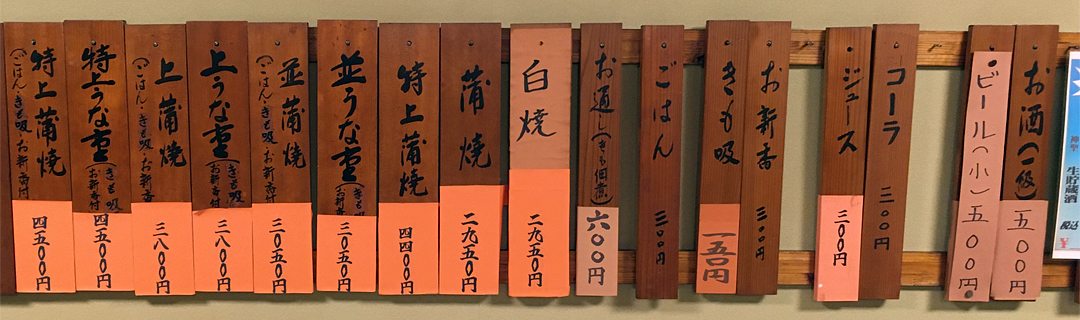 生貯蔵酒
税込
お酒(一級) 五〇〇円
ビール(小) 五〇〇円
コーラ 三〇〇円
ジュース 三〇〇円
お新香 三〇〇円
きも吸 一五〇円
ごはん 三〇〇円
お通し(きも佃煮) 六〇〇円
白焼 二九五〇円
蒲焼 二九五〇円
特上蒲焼 四四〇〇円
並うな重(きも吸 三〇五〇円
並蒲焼 三〇五〇円
(ごはん・きも吸・お新香付
上うな重(きも吸 お新香付 三八〇〇円
上蒲焼 三八〇〇円
(ごはん・きも吸・お新香
特上うな重(きも吸 お新香付 四五〇〇円
特上蒲焼 四五〇〇円
(ごはん・きも吸・お新香付